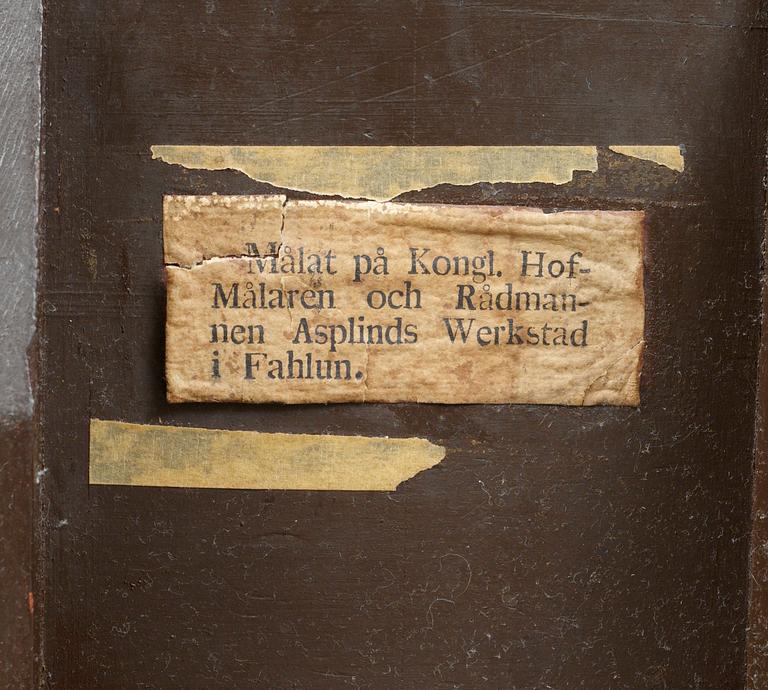 Målat på Kongl. Hof-
Målaren och Rådman-
nen Asplinds Werkstad
i Fahlun.